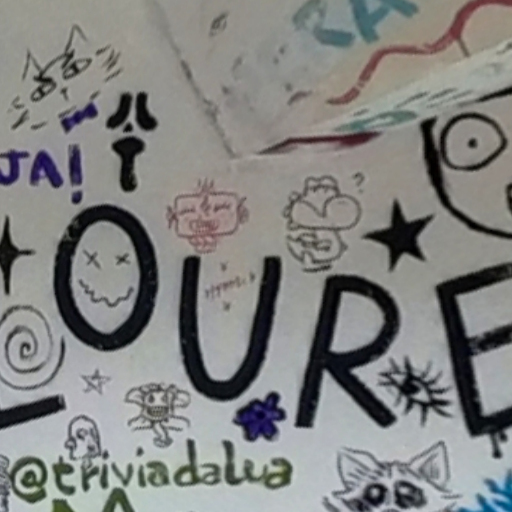 RA
JA!
LOURE
@triviadalua